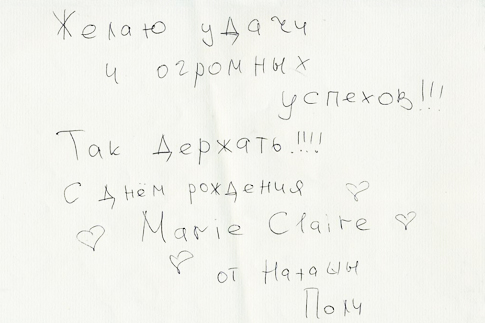 Желаю удачи
и огромных
успехов!!!
Так держать!!!!
С днём рождения
Marie Claire
от Наташи
Поли